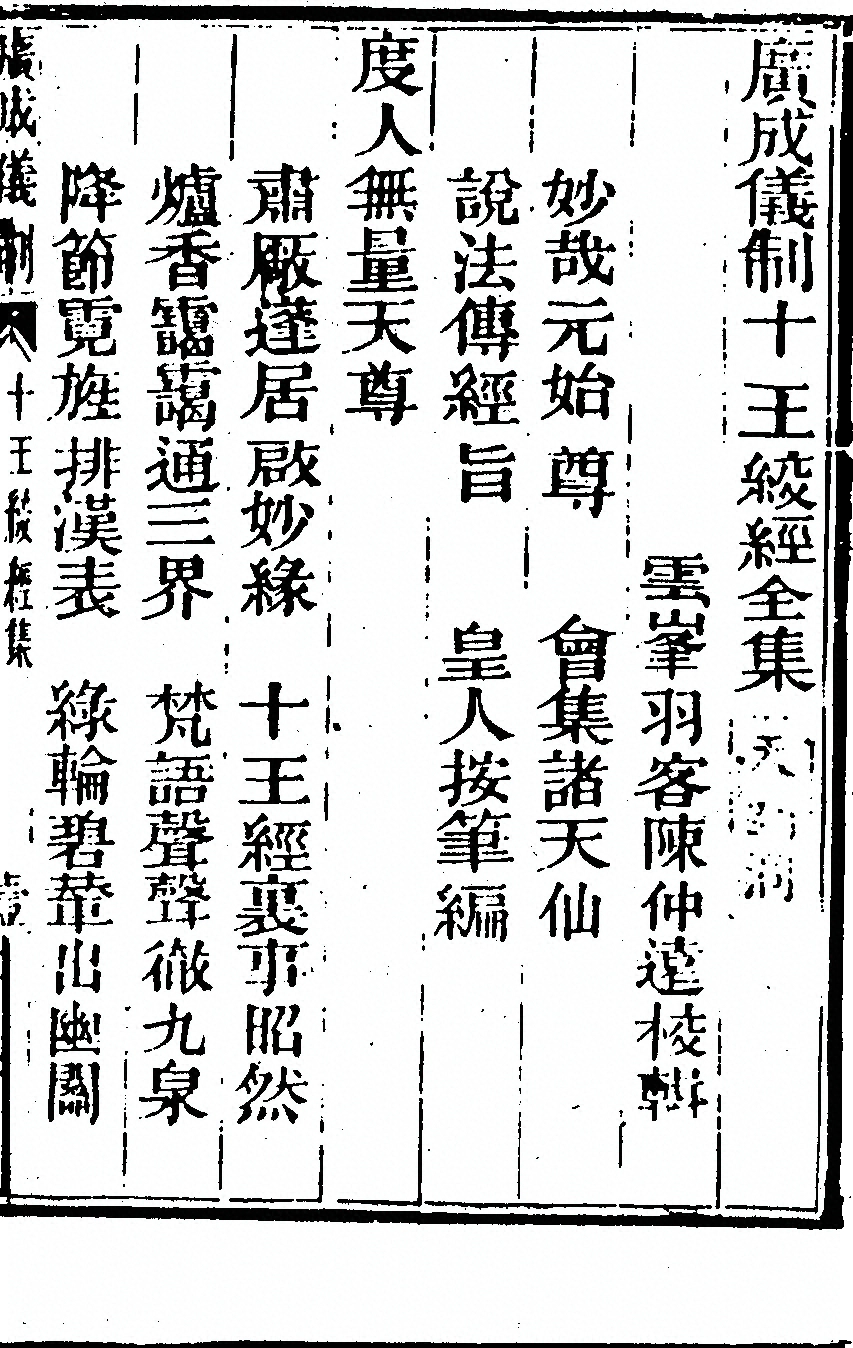 廣成儀制十王綾經全集
雲峯羽客陳仲遠校輯
妙哉元始尊　會集諸天仙
說法傳經旨　皇人按筆編
度人無量天尊
肅厰蓬居啟妙緣　十王經裏事昭然
爐香靄靄通三界　梵語聲聲徹九泉
降節霓旌排漢表　綠輪碧輦出幽關
廣成儀制　十王綾經集　壹